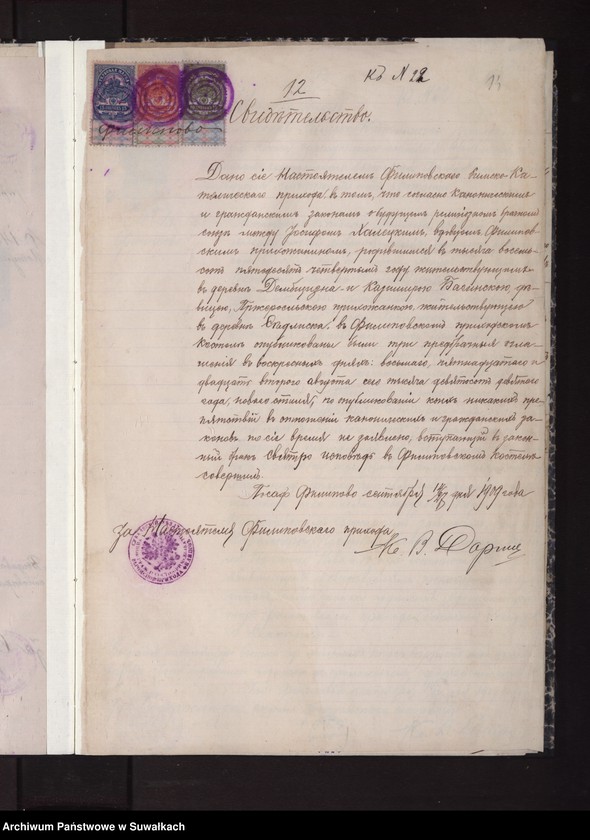 12
Къ N 22
Филипово
Свидѣтельство.
Дано сіе Настоятелемъ Филиповскаго Римско-Ка-
толическаго прихода въ томъ, что согласно каноническимъ
и гражданскимъ законамъ о будущемъ религіозномъ брачномъ
союзѣ между Іосифомъ Халецкимъ, вдовцомъ, Филипов-
скимъ прихожаниномъ, родившимся въ тысяча восемь-
сотъ пятьдесятъ четвертомъ году жительствующимъ
въ деревнѣ и Казимирою дѣ-
вицею, Пржеросльскою прихожанкою, жительствующею
въ деревнѣ въ Филиповскомъ приходскомъ
Костелѣ опубликованы были три предбрачныя огла-
шенія въ воскресныхъ дняхъ: восьмаго, пятнадцатаго и
двадцать втораго августа сего тысяча девятьсотъ девятаго
года, новаго стиля, по публикованіи коихъ никакихъ пре-
пятствій въ отношеніи каноническихъ и гражданскихъ за-
коновъ по сіе время не заявлено, вступающій въ закон-
ный бракъ Св. исповѣдь въ Филиповскомъ Костелѣ
совершилъ.
Посадъ Филипово сентября дня 1909 года
За Настоятеля Филиповскаго прихода
Кс. В.
Archiwum Państwowe w Suwałkach